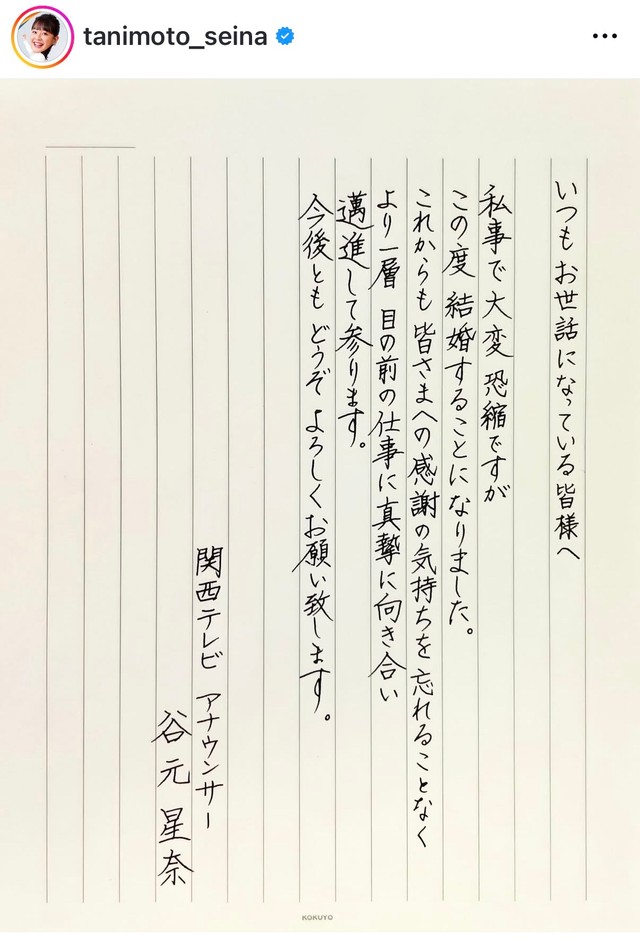 tanimoto_seina
いつもお世話になっている皆様へ
私事で大変恐縮ですが
この度 結婚することになりました。
これからも 皆さまへの感謝の気持ちを 忘れることなく
より一層 目の前の仕事に真摯に向き合い
邁進して参ります。
今後とも どうぞ よろしくお願い致します。
関西テレビ アナウンサー
谷元 星奈
KOKUYO